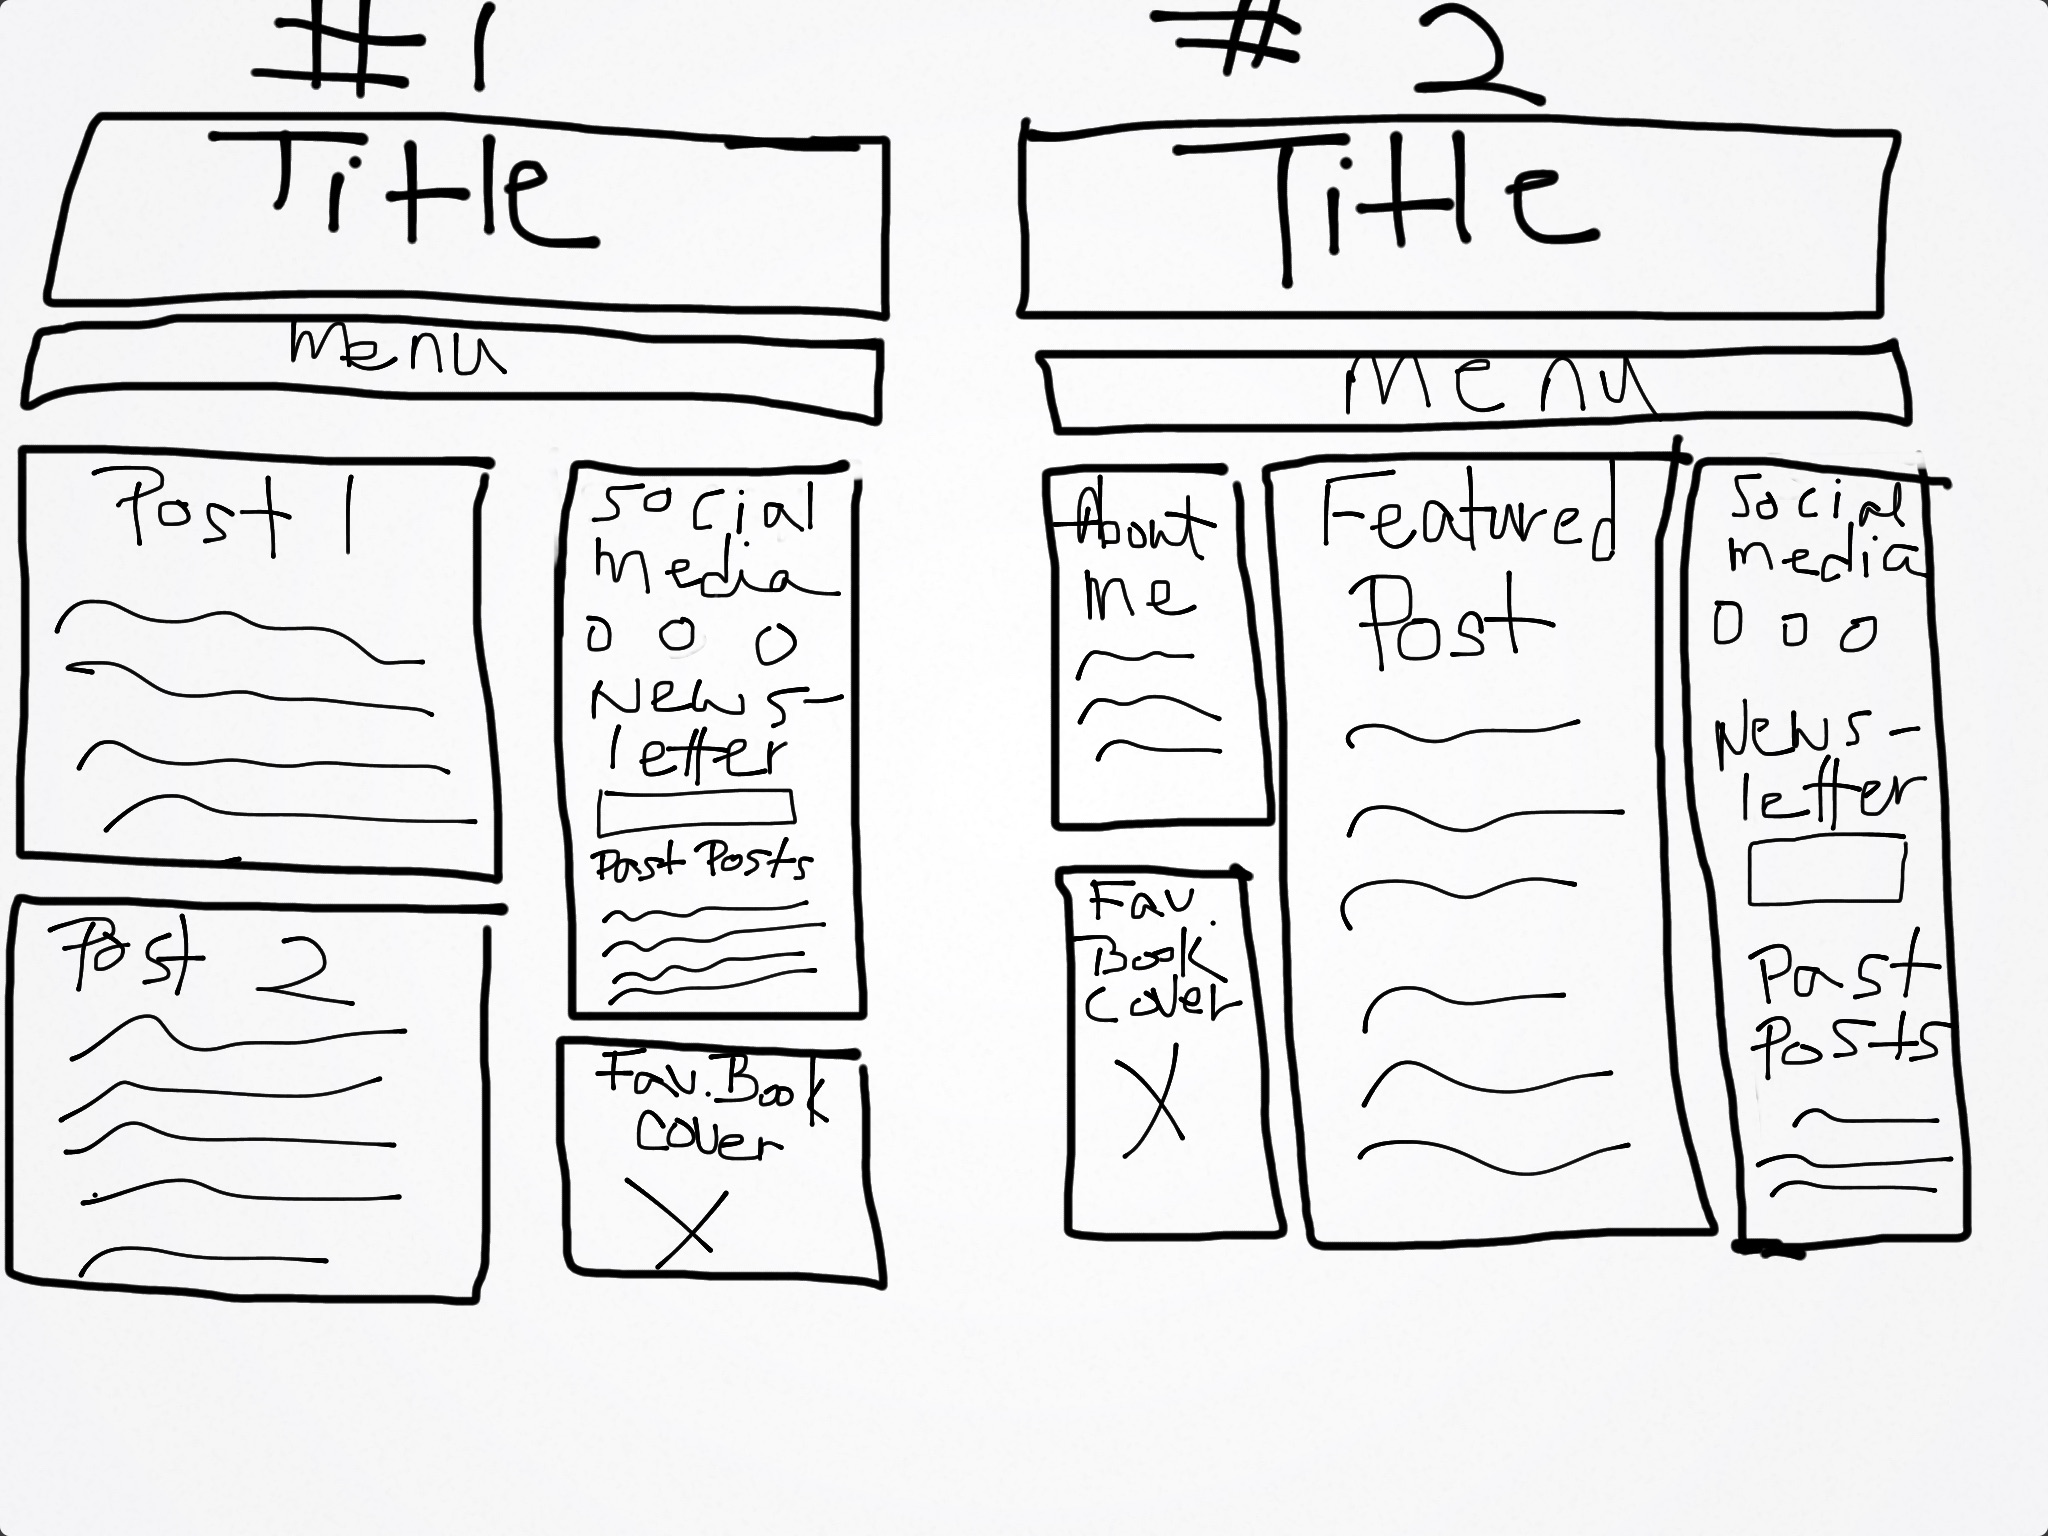 #1
Title
Menu
Post 1
Social
Media
News-
letter
Past Posts
Post 2
Fav. Book
Cover
# 2
Title
Menu
About
Me
Fav.
Book
Cover
Featured
Post
Social
Media
News-
letter
Past
Posts